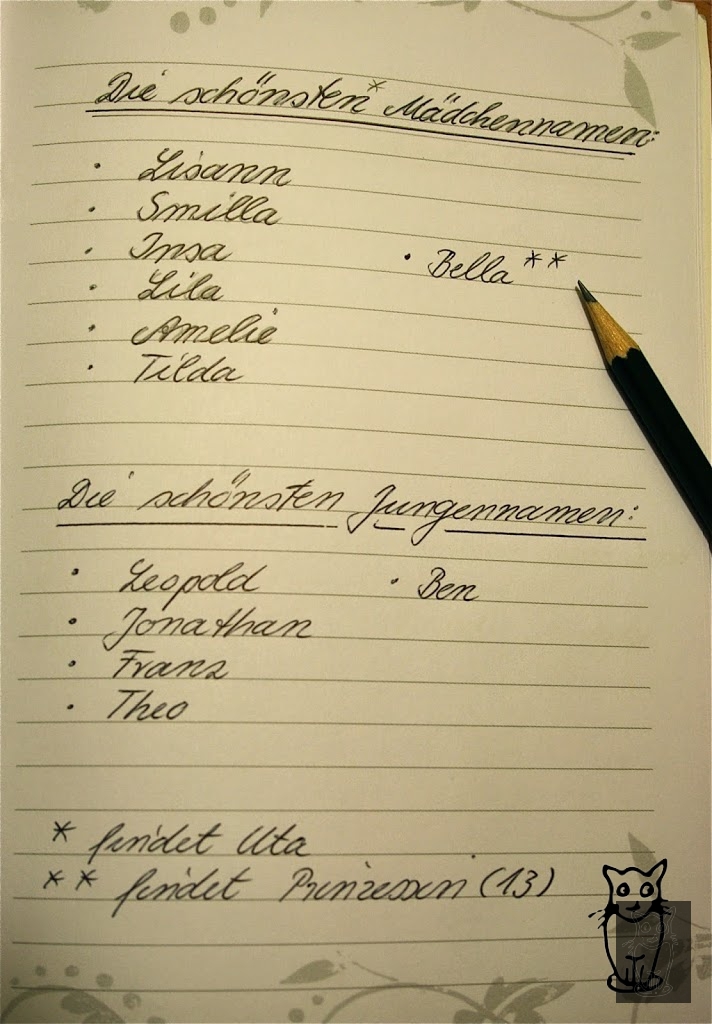 Die schönsten* Mädchennamen:
• Lisann
• Smilla
• Insa
• Bella **
• Lila
• Amelie
• Tilda
Die schönsten Jungennamen:
• Leopold • Ben
• Jonathan
• Franz
• Theo
* findet Uta
** findet Prinzessin (13)